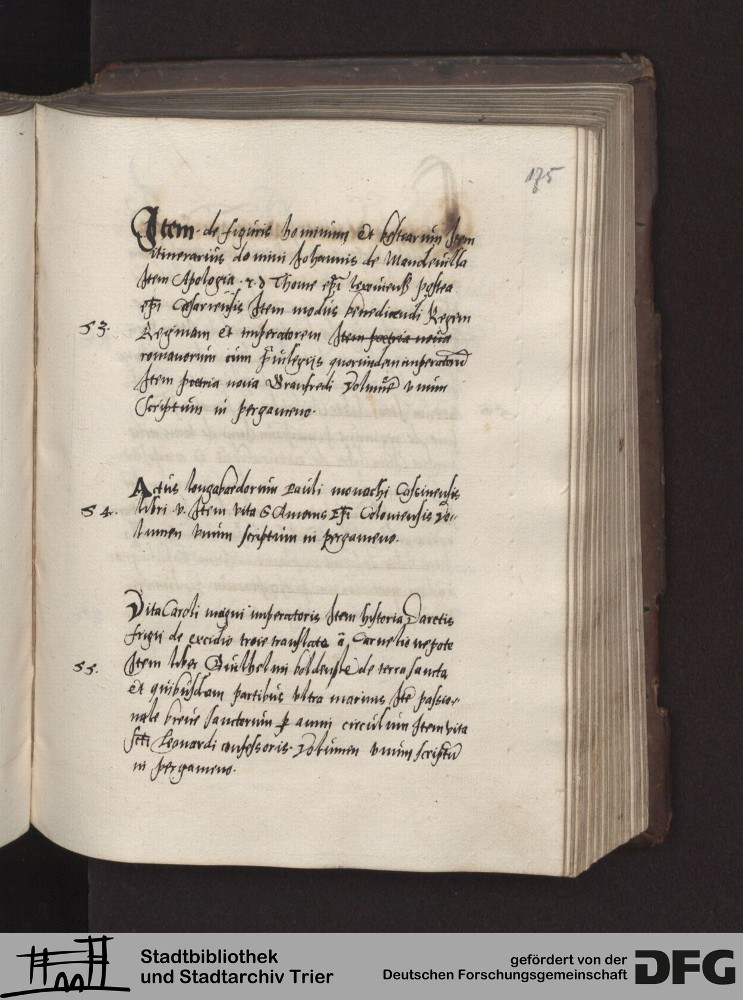 175
Item de figuris hominum et bestiarum Item
itinerarius domini Johannis de Mandevilla
Item Apologia Thome epi postea
epi Item modus benedicendi Regem
53. Reginam et imperatorem Item poetria noua
romanorum cum priuilegijs quorundam imperatorum
Item poetria noua Volumen vnum
Scriptum in pergameno.
Actus longobardorum Pauli monachi Cassinensis
54. libri v. Item vita S Annonis Epi Coloniensis Vo-
lumen vnum scriptum in pergameno.
Vita Caroli magni imperatoris Item historia Daretis
frigii de excidio troie translata a Cornelio nepote
55. Item liber Guilhelmi de terra sancta
et quibusdam partibus vltra marinis Ite passio-
nale breue sanctorum p anni circulum Item vita
scti Leonardi confessoris. Volumen vnum scriptu
in pergameno.
Stadtbibliothek
und Stadtarchiv Trier
gefördert von der
Deutschen Forschungsgemeinschaft
DFG